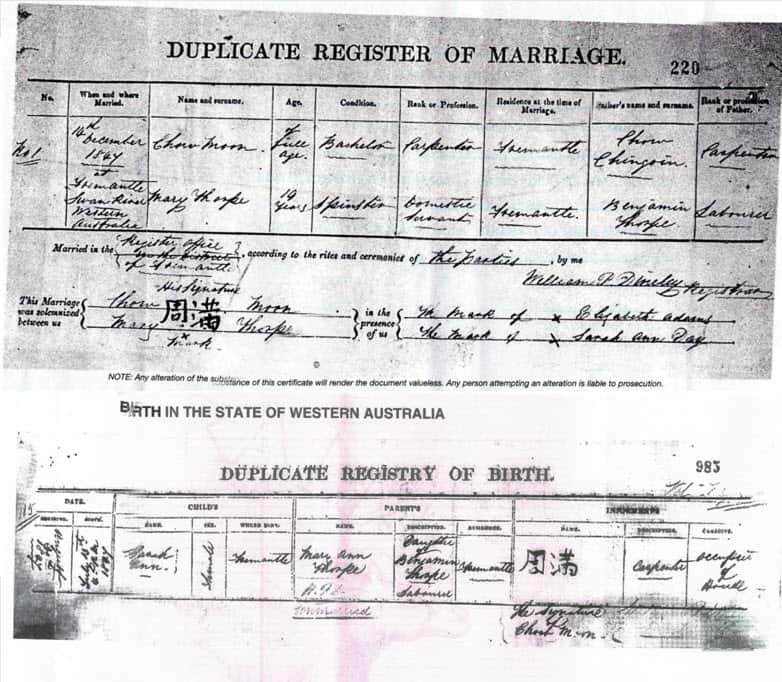 DUPLICATE REGISTER OF MARRIAGE.
220
No. When and where Married. Name and surname. Age. Condition. Rank or Profession. Residence at the time of Marriage. Father's name and surname. Rank or profession of Father.
No 1
December
at Fremantle Swan River Western Australia
Chow Moon of full age. Bachelor Carpenter Fremantle Chow Carpenter
Mary Thorpe 19 years Spinster Domestic Servant Fremantle. Benjamin Thorpe Labourer
Married in the Register office of Fremantle, according to the rites and ceremonies of the parties, by me
William P Registrar
His Signature
This Marriage was solemnized between us
Chow 周满 Moon
Mary x mark Thorpe
in the presence of us
The mark of x Elizabeth Adams
The mark of x Sarah Ann Day
NOTE: Any alteration of the substance of this certificate will render the document valueless. Any person attempting an alteration is liable to prosecution.
BIRTH IN THE STATE OF WESTERN AUSTRALIA
DUPLICATE REGISTRY OF BIRTH.
985
DATE. CHILD'S PARENT'S INFORMANT'S
NAME. SEX. WHERE BORN. NAME. DESCRIPTION. RESIDENCE. NAME. DESCRIPTION. CAPACITY.
Sarah Ann. Female Fremantle Mary Ann Thorpe Daughter of Benjamin Thorpe Labourer Fremantle 周满 Carpenter Occupier of House
The Signature of Chow Moon